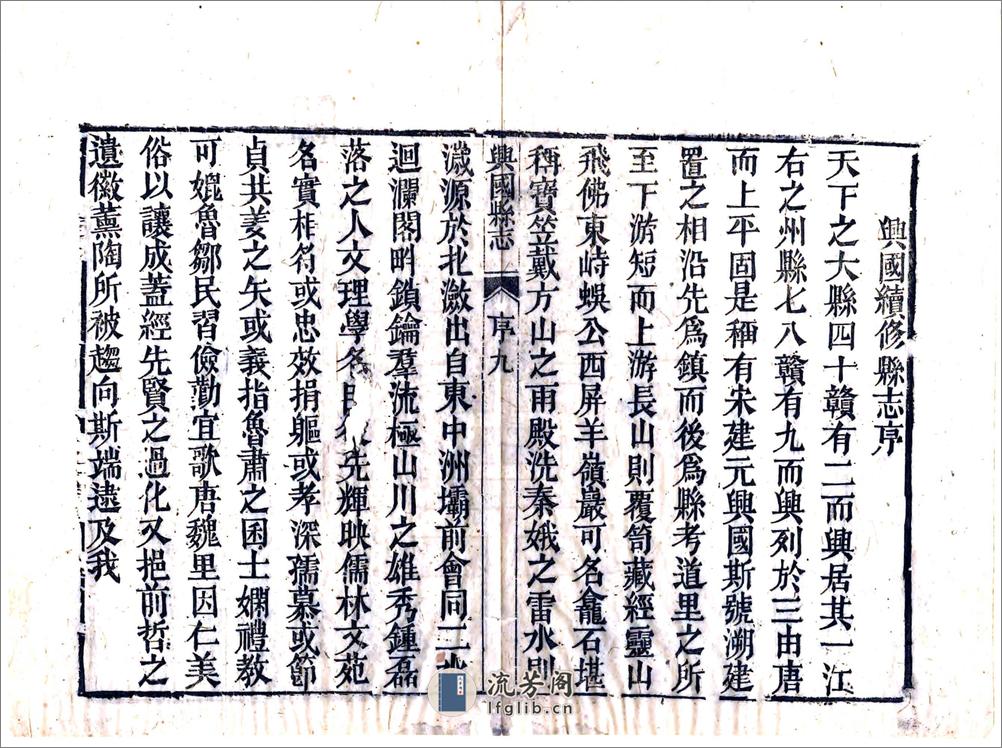 興國續修縣志序
天下之大縣四十贛有二而興居其一江
右之州縣七八贛有九而興列於三由唐
而上平固是稱有宋建元興國斯號溯建
置之相沿先爲鎮而後爲縣考道里之所
至下游短而上游長山則覆笥藏經靈山
飛佛東峙蜈公西屏羊嶺巖可名龕石堪
稱寶笠戴方山之雨殿洗秦娥之雷水則
興國縣志
序九
濊源於北瀲出自東中洲壩前會同二水
迴瀾閣畔鎖鑰羣流極山川之雄秀鍾磊
落之人文理學名先輝映儒林文苑
名實相符或忠效捐軀或孝深孺慕或節
貞共姜之矢或義指魯肅之囷士嫻禮教
可媲魯鄒民習儉勤宜歌唐魏里因仁美
俗以讓成蓋經先賢之過化又挹前哲之
遺徽薰陶所被趨向斯端逺及我
流芳阁
lfglib.cn